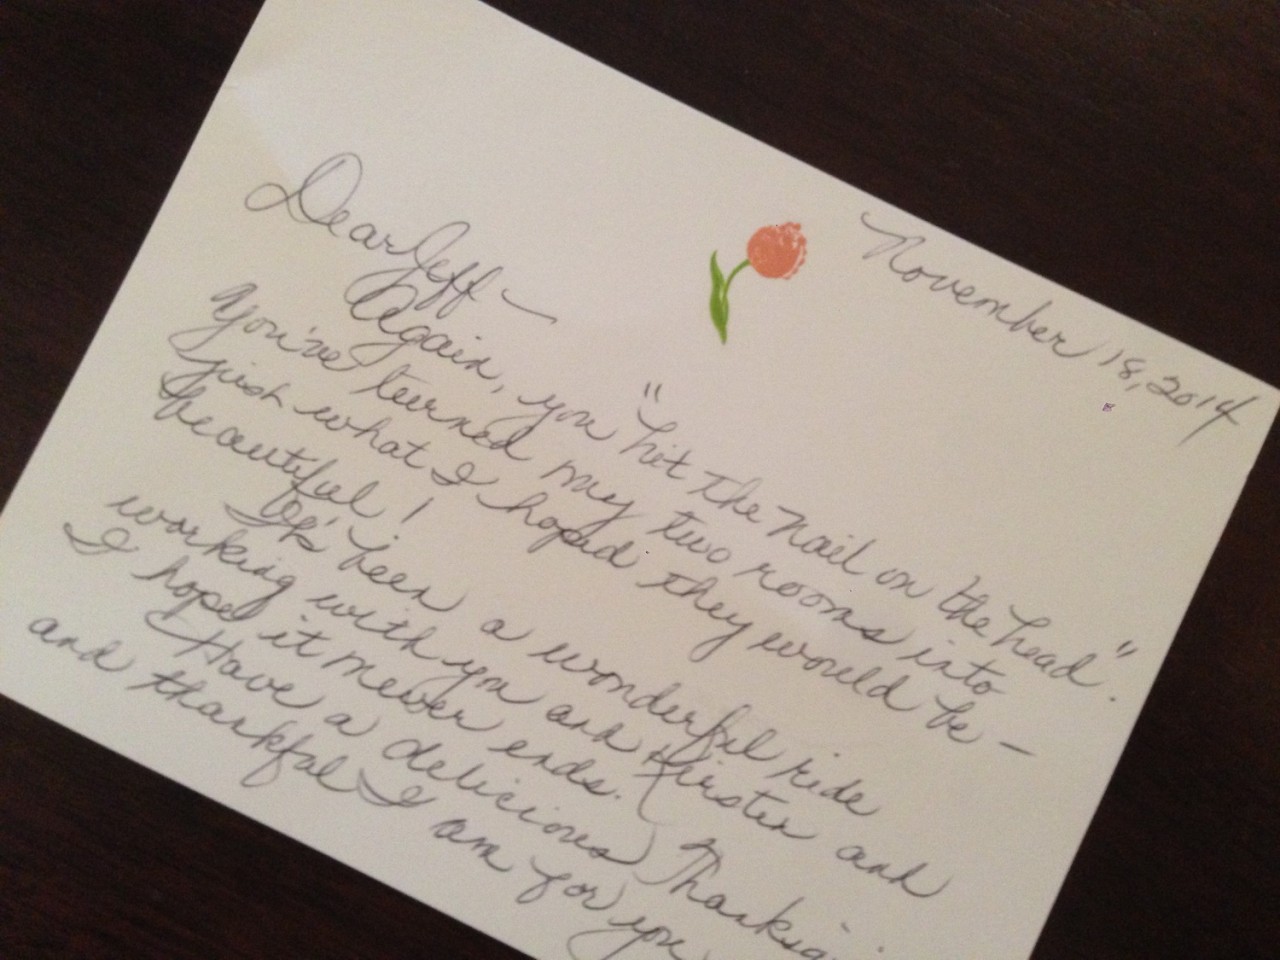 November 18, 2014
Dear Jeff -
Again, you "hit the nail on the head".
You've turned my two rooms into
just what I hoped they would be -
beautiful!
It's been a wonderful ride
working with you and Kirsten and
I hope it never ends.
Have a delicious
and thankful I am for you